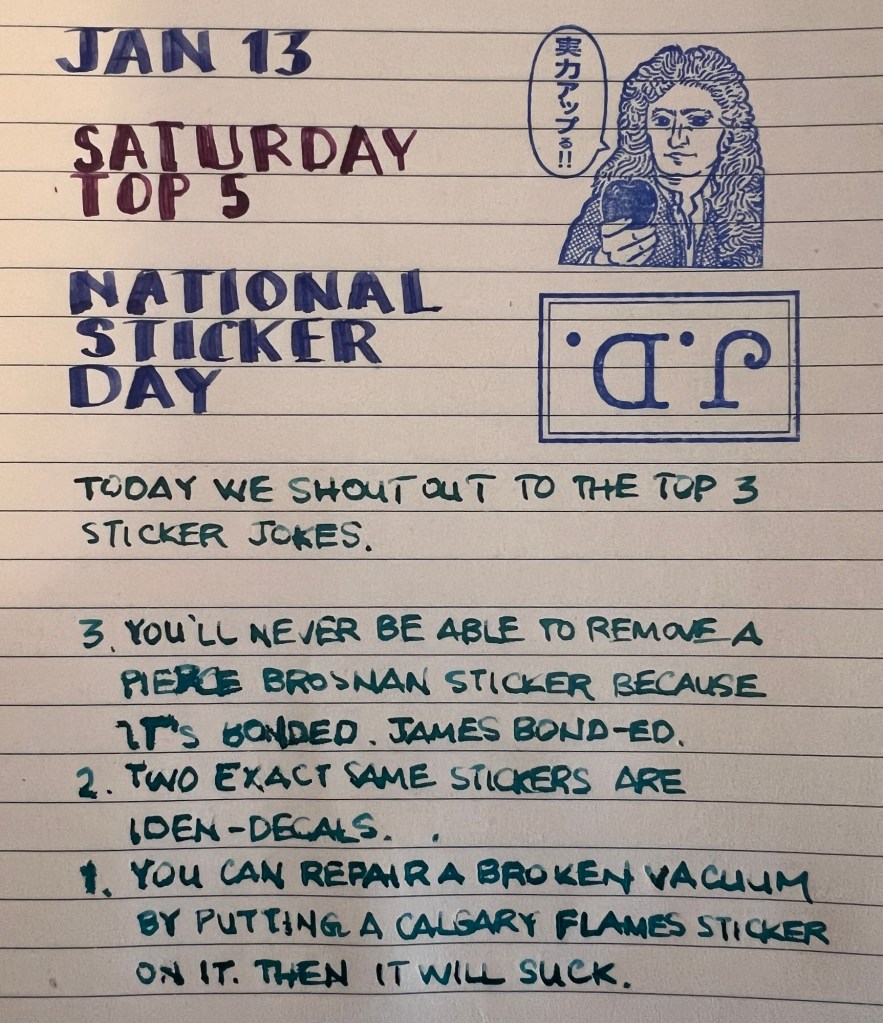 JAN 13
実力アップる!!
SATURDAY
TOP 5
NATIONAL
STICKER
DAY
J.D.
TODAY WE SHOUT OUT TO THE TOP 3
STICKER JOKES.
3. YOU'LL NEVER BE ABLE TO REMOVE A
PIERCE BROSNAN STICKER BECAUSE
IT'S BONDED. JAMES BOND-ED.
2. TWO EXACT SAME STICKERS ARE
IDEN-DECALS. .
1. YOU CAN REPAIR A BROKEN VACUUM
BY PUTTING A CALGARY FLAMES STICKER
ON IT. THEN IT WILL SUCK.